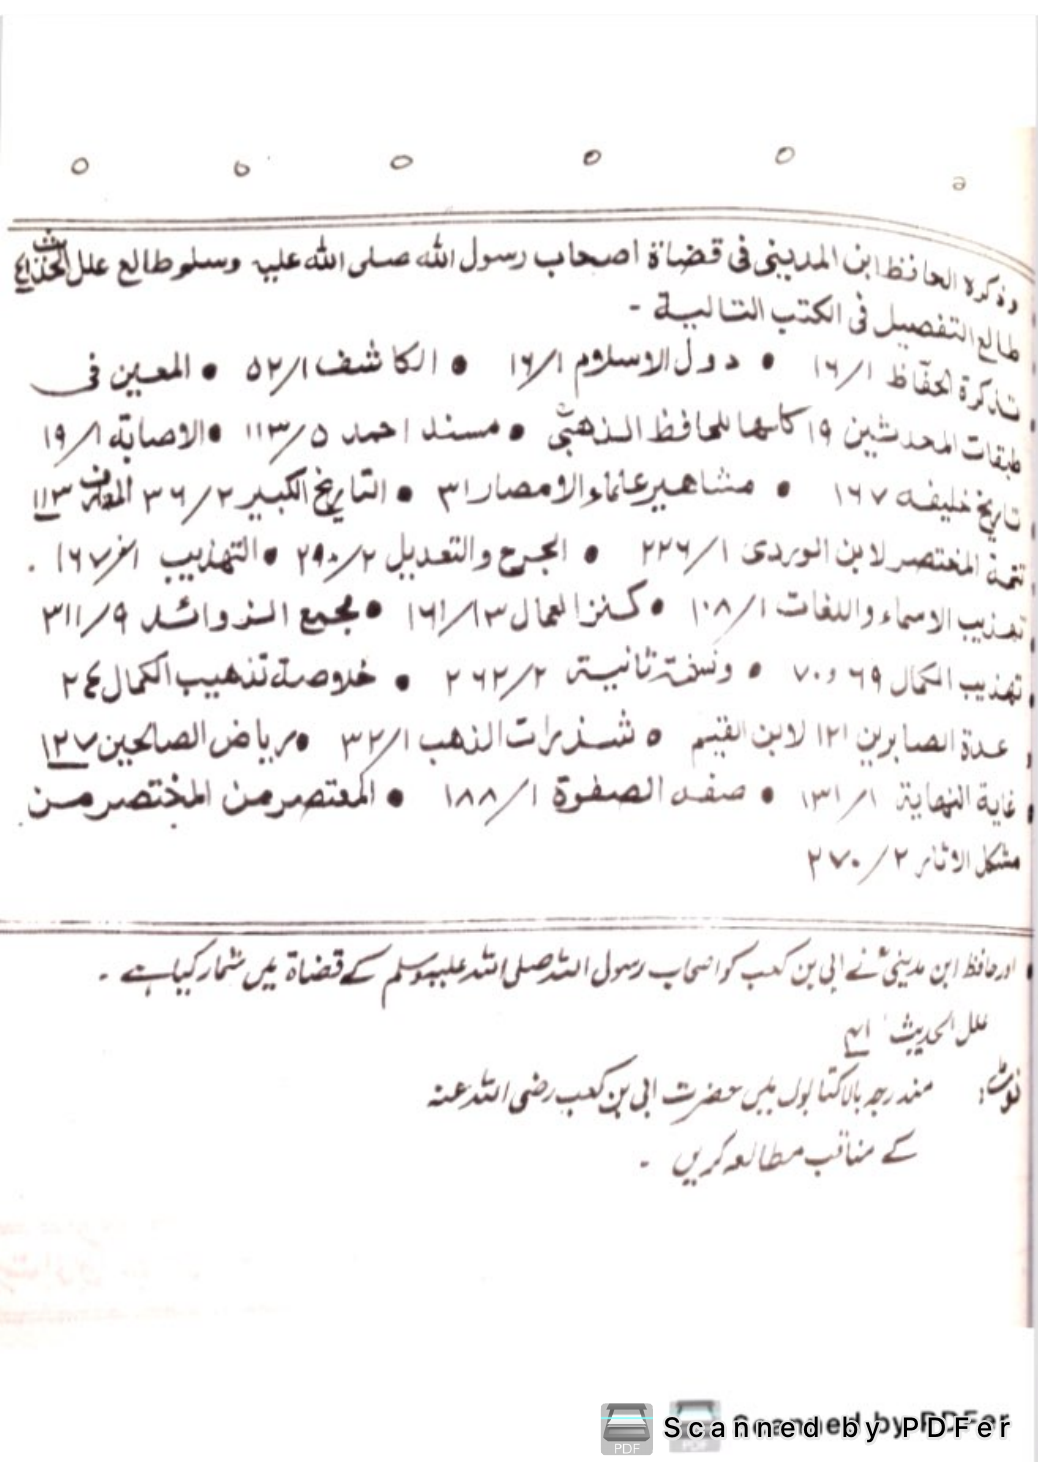 وذكره الحافظ ابن المدينى فى قضاة اصحاب رسول الله صلى الله عليه وسلم طالع علل الحديث
طالع التفصيل فى الكتب التالية -
تذكرة الحفّاظ ١/١٦ • دول الاسلام ١/١٦ • الكاشف ١/٥٢ • المعين فى
طبقات المحدثين ١٩ كلها للحافظ الذهبىؒ • مسند احمد ٥/١١٣ • الاصابة ١/١٩
تاريخ خليفه ١٦٧ • مشاهير علماء الامصار ٣١ • التاريخ الكبير ٢/٣٦ المعارف ١١٣
تتمة المختصر لابن الوردى ١/٢٢٦ • الجرح والتعديل ٢/٢٩٠ • التهذيب
تهذيب الاسماء واللغات ١/١٠٨ • كنز العمال ١٣/ • مجمع الزوائد ٩/٣١١
تهذيب الكمال ٦٩ و ٧٠ • ونسخة ثانية ٢/٢٦٢ • خلاصة تذهيب الكمال ٢٤
عدة الصابرين ١٢١ لابن القيم • شذرات الذهب ١/٣٢ • رياض الصالحين ١٢٧
غاية النهاية ١/١٣١ • صفه الصفوة ١/١٨٨ • المعتصر من المختصر من
مشكل الاثار ٢/٢٧٠
• اور حافظ ابن مدینیؒ نے ابی بن کعب کو اصحاب رسول اللہ صلی اللہ علیہ وسلم کے قضاۃ میں شمار کیا ہے ۔
علل الحدیث ٤١
نوٹ: مندرجہ بالا کتابوں میں حضرت ابی بن کعب رضی اللہ عنہ
کے مناقب مطالعہ کریں ۔
Scanned by PDFer